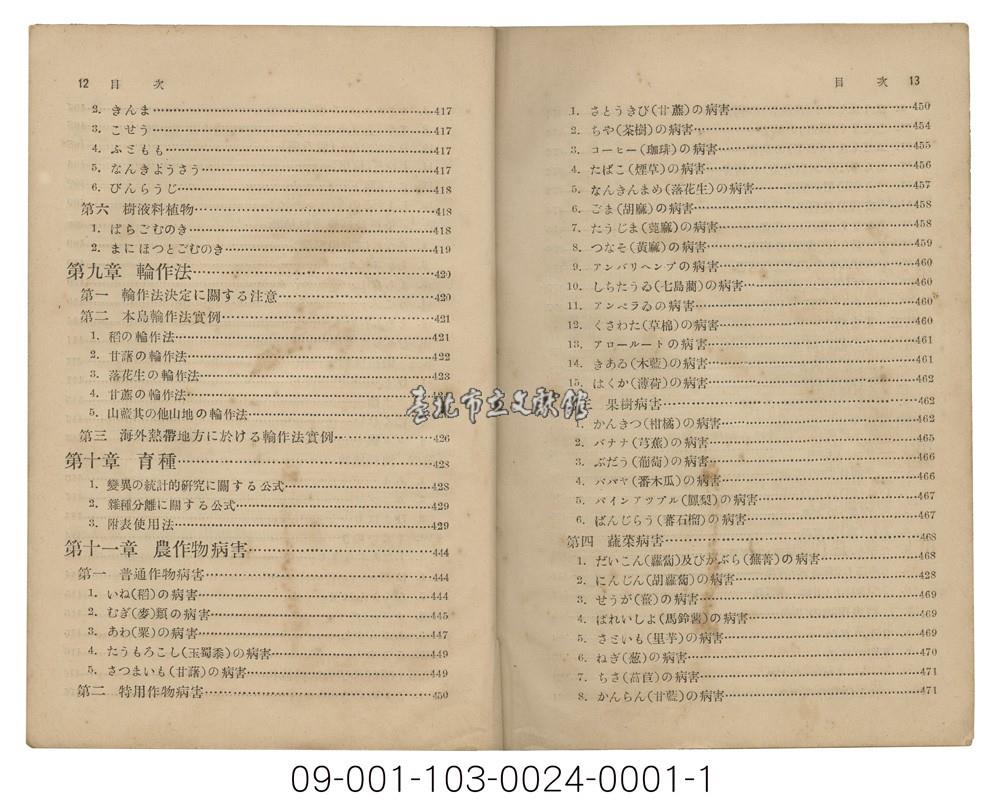 12 目 次
2. きんま 417
3. こせう 417
4. ふともも 417
5. なんきようさう 417
6. びんらうじ 418
第六 樹液料植物 418
1. ぱらごむのき 418
2. まにほつとごむのき 419
第九章 輪作法 420
第一 輪作法決定に關する注意 420
第二 本島輪作法實例 421
1. 稻の輪作法 421
2. 甘藷の輪作法 422
3. 落花生の輪作法 423
4. 甘蔗の輪作法
5. 山藍其の他山地の輪作法
第三 海外熱帶地方に於ける輪作法實例 426
第十章 育種 428
1. 變異の統計的研究に關する公式 428
2. 雜種分離に關する公式 429
3. 附表使用法 429
第十一章 農作物病害 444
第一 普通作物病害 444
1. いね(稻)の病害 444
2. むぎ(麥)類の病害 445
3. あわ(粟)の病害 447
4. たうもろこし(玉蜀黍)の病害 449
5. さつまいも(甘藷)の病害 449
第二 特用作物病害 450
目 次 13
1. さとうきび(甘蔗)の病害 450
2. ちや(茶樹)の病害 454
3. コーヒー(珈琲)の病害 455
4. たばこ(煙草)の病害 456
5. なんきんまめ(落花生)の病害 457
6. ごま(胡麻)の病害 458
7. たうじま(萞麻)の病害 458
8. つなそ(黃麻)の病害 459
9. アンバリヘンプの病害 460
10. しちたうゐ(七島藺)の病害 460
11. アンペラゐの病害 460
12. くさわた(草棉)の病害 460
13. アロールートの病害 461
14. きあゐ(木藍)の病害 461
15. はくか(薄荷)の病害 462
果樹病害 462
1. かんきつ(柑橘)の病害
2. バナナ(芎蕉)の病害 465
3. ぶだう(葡萄)の病害 466
4. パパヤ(番木瓜)の病害 466
5. パインアツプル(鳳梨)の病害 467
6. ばんじらう(蕃石榴)の病害 467
第四 蔬菜病害 468
1. だいこん(蘿蔔)及びかぶら(蕪菁)の病害 468
2. にんじん(胡蘿蔔)の病害 428
3. せうが(薑)の病害 469
4. ばれいしよ(馬鈴薯)の病害 469
5. さといも(里芋)の病害 469
6. ねぎ(葱)の病害 470
7. ちさ(萵苣)の病害 471
8. かんらん(甘藍)の病害 471
臺北市立文獻館
09-001-103-0024-0001-1